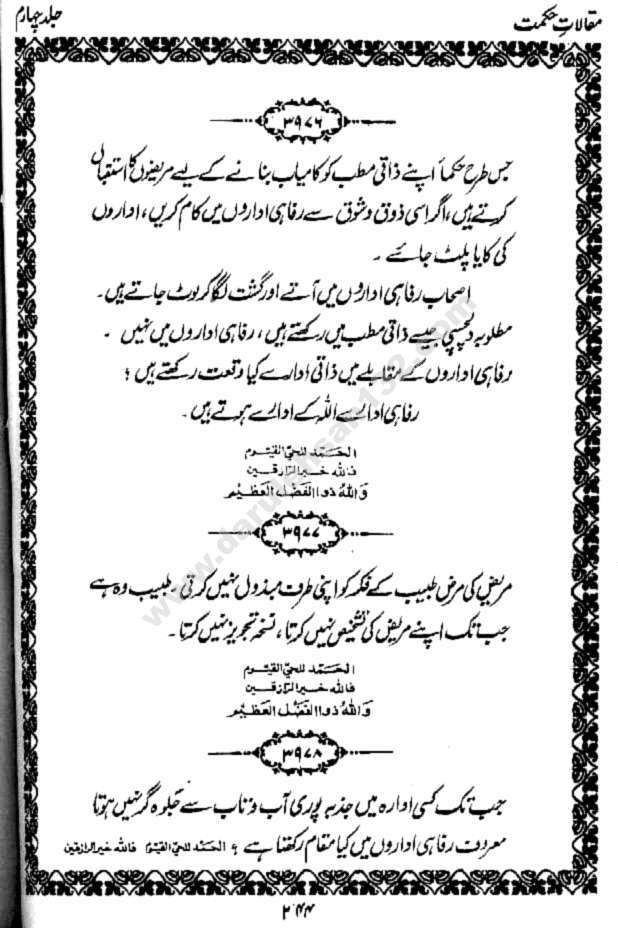 مقالاتِ حکمت
جلد چہارم
۳۹۷۶
جس طرح حکماً اپنے ذاتی مطب کو کامیاب بنانے کے لیے مریضوں کا استقبال
کرتے ہیں، اگر اسی ذوق و شوق سے رفاہی اداروں میں کام کریں، اداروں
کی کایا پلٹ جائے۔
اصحاب رفاہی اداروں میں آتے اور گشت لگا کر لوٹ جاتے ہیں۔
مطلوبہ دلچسپی جیسے ذاتی مطب میں رکھتے ہیں، رفاہی اداروں میں نہیں۔
رفاہی اداروں کے مقابلے میں ذاتی ادارے کیا وقعت رکھتے ہیں؟
رفاہی ادارے اللہ کے ادارے ہوتے ہیں۔
الحَمد للحیّ القیّوم
فالله خیر الرّازقین
وَاللهُ ذُو االفَضْل العَظِیْم
۳۹۷۷
مریض کی مرض طبیب کے فکر کو اپنی طرف مبذول نہیں کرتی۔ طبیب وہ ہے
جب تک اپنے مریض کی تشخیص نہیں کرتا، نسخہ تجویز نہیں کرتا۔
الحَمد للحیّ القیّوم
فالله خیر الرّازقین
وَاللهُ ذُو االفَضْل العَظِیْم
۳۹۷۸
جب تک کسی ادارہ میں جذبہ پوری آب و تاب سے جلوہ گر نہیں ہوتا
معروف رفاہی اداروں میں کیا مقام رکھتا ہے؟ الحَمد للحیّ القیّوم فالله خیر الرازقین
۲۴۴
www.darulehsan132.com